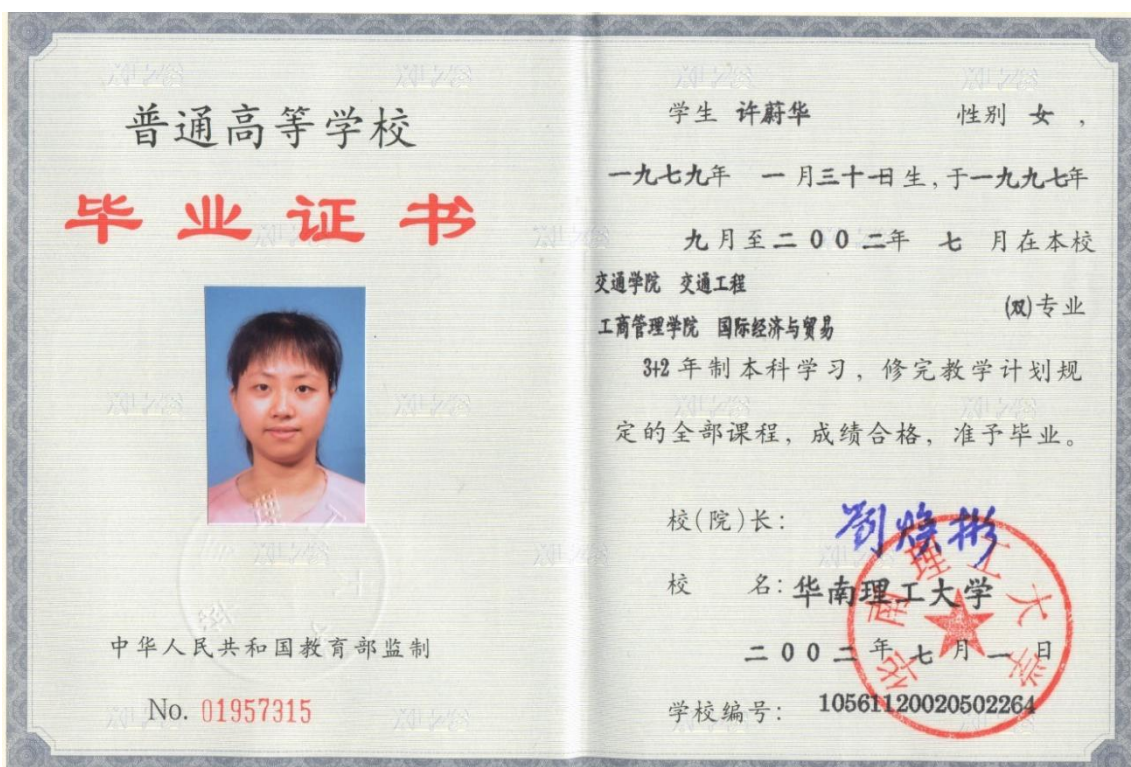 普通高等学校
毕业证书
中华人民共和国教育部监制
No. 01957315
学生 许蔚华 性别 女,
一九七九年 一月三十日生,于一九九七年
九月至二00二年 七 月在本校
交通学院 交通工程
工商管理学院 国际经济与贸易
(双)专业
3+2年制本科学习,修完教学计划规
定的全部课程,成绩合格,准予毕业。
校(院)长: 劉焕彬
校 名:华南理工大学
二00二年七月一日
学校编号: 10561120020502264
华南理工大学